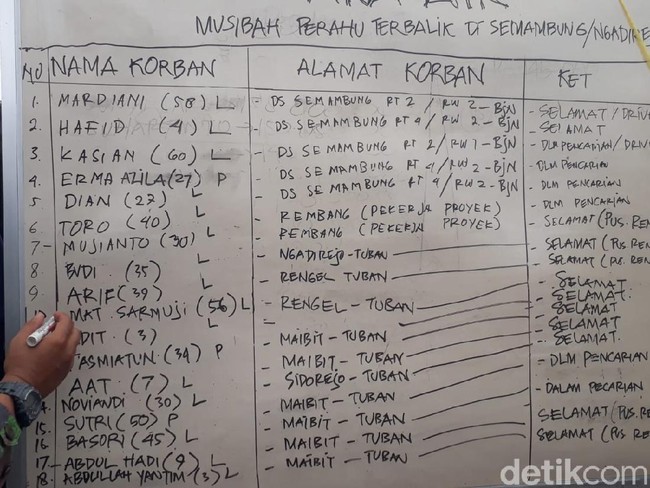 MUSIBAH PERAHU TERBALIK DI SEMAMBUNG/NGADIRE
NO NAMA KORBAN ALAMAT KORBAN KET
1. MARDIANI (58) L - DS SEMAMBUNG RT 2 / RW 2 - BJN - SELAMAT / DRIV
2. HAFID (4) L - DS SEMAMBUNG RT 4 / RW 2 - BJN - SELAMAT
3. KASIAN (60) L - DS SEMAMBUNG RT 2 / RW 1 - BJN - DLM PENCARIAN / DRIV
4. ERMA (27) P - DS SEMAMBUNG RT 4 / RW 2 - BJN - DLM PENCARIAN
5 DIAN (27) L - DS SEMAMBUNG RT 4 / RW 2 - BJN - DLM PENCARIAN
6 TORO (40) L - REMBANG (PEKERJA PROYEK) - DLM PENCARIAN
7- MUJIANTO (30) L - REMBANG (PEKERJA PROYEK) - SELAMAT (PUS. REN
8 BUDI (35) L - NGADIREJO - TUBAN - SELAMAT (PUS REN
9. ARIF (39) L - RENGEL TUBAN - SELAMAT (PUS. REN
MAT SARMUJI (56) L - RENGEL - TUBAN - SELAMAT
DIT (3) L - MAIBIT - TUBAN - SELAMAT
TASMIATUN (34) P - MAIBIT - TUBAN - SELAMAT
AAT (7) L - SIDOREJO - TUBAN - SELAMAT
NOVIANDI (30) L - MAIBIT - TUBAN - SELAMAT
15. SUTRI (50) P - MAIBIT - TUBAN - DLM PENCARIAN
16 BASORI (45) L - MAIBIT - TUBAN - DALAM PECARIAN
17- ABDUL HADI (9) L - MAIBIT - TUBAN - SELAMAT (PUS. REN
18- ABDULLAH YANTIM (3) L - SELAMAT (PUS. REN
detikcom